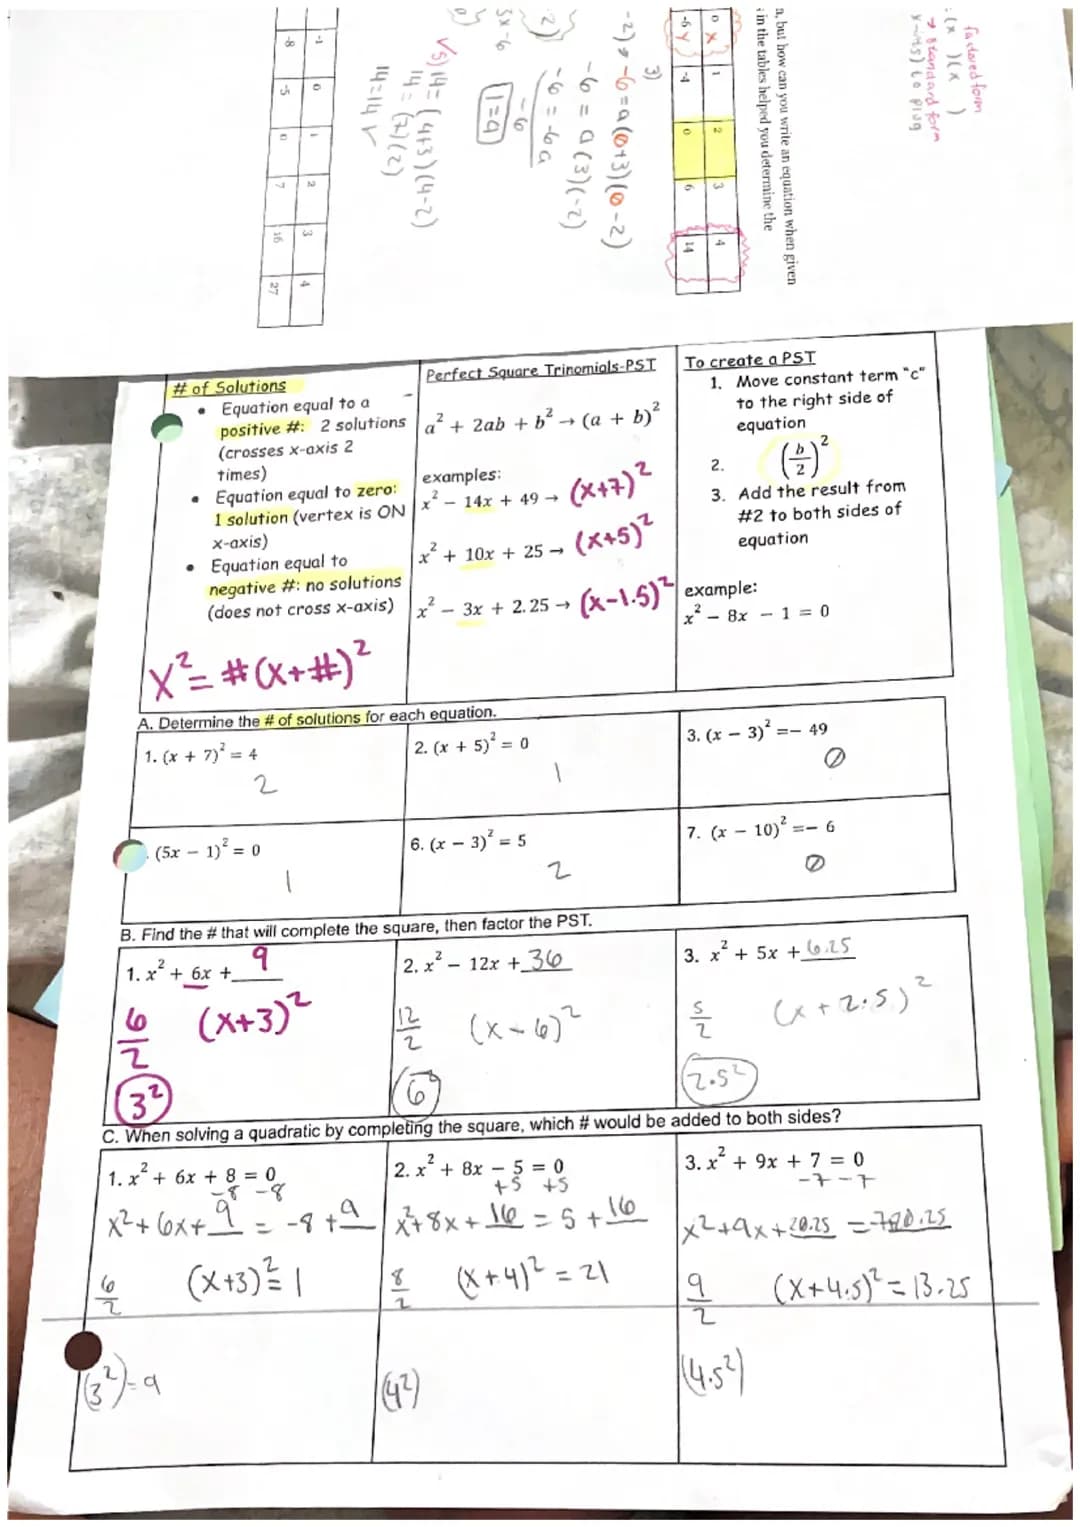 factored form
(x )(x )
→ standard form
x-ints) to plug
n, but how can you write an equation when given
in the tables helped you determine the
x 0 1 2 3 4
y -6 -4 0 6 14
3)
-2) → -6=a(0+3)(0-2)
-6 = a(3)(-2)
-6 = -6a
-6
1=a
√s) 14= (4+3)(4-2)
14= (7)(2)
14=14 ✓
-1 0 1 2 3 4
-8 -5 0 7 16 27
# of Solutions
• Equation equal to a
positive #: 2 solutions
(crosses x-axis 2
times)
• Equation equal to zero:
1 solution (vertex is ON
x-axis)
• Equation equal to
negative #: no solutions
(does not cross x-axis)
x² = #(x+#)²
Perfect Square Trinomials-PST
a² + 2ab + b² → (a + b)²
examples:
x² – 14x + 49 → (x+7)²
x² + 10x + 25 → (x+5)²
x² – 3x + 2.25 → (x-1.5)²
To create a PST
1. Move constant term "c"
to the right side of
equation
2. (b/2)²
3. Add the result from
#2 to both sides of
equation
example:
x² – 8x – 1 = 0
A. Determine the # of solutions for each equation.
1. (x + 7)² = 4
2
2. (x + 5)² = 0
1
3. (x – 3)² =– 49
∅
(5x – 1)² = 0
1
6. (x – 3)² = 5
2
7. (x – 10)² =– 6
∅
B. Find the # that will complete the square, then factor the PST.
1. x² + 6x + 9
6/2 (x+3)²
3²
2. x² – 12x + 36
12/2 (x-6)²
6²
3. x² + 5x + 6.25
5/2 (x+2.5)²
2.5²
C. When solving a quadratic by completing the square, which # would be added to both sides?
1. x² + 6x + 8 = 0
-8 -8
x²+6x+ 9 = -8 + 9
6/2 (x+3)² = 1
(3²)=9
2. x² + 8x – 5 = 0
+5 +5
x²+8x+ 16 = 5 + 16
8/2 (x+4)² = 21
(4²)
3. x² + 9x + 7 = 0
-7 -7
x²+9x+20.25 =-7
9/2 (x+4.5)² = 13.25
(4.5²)